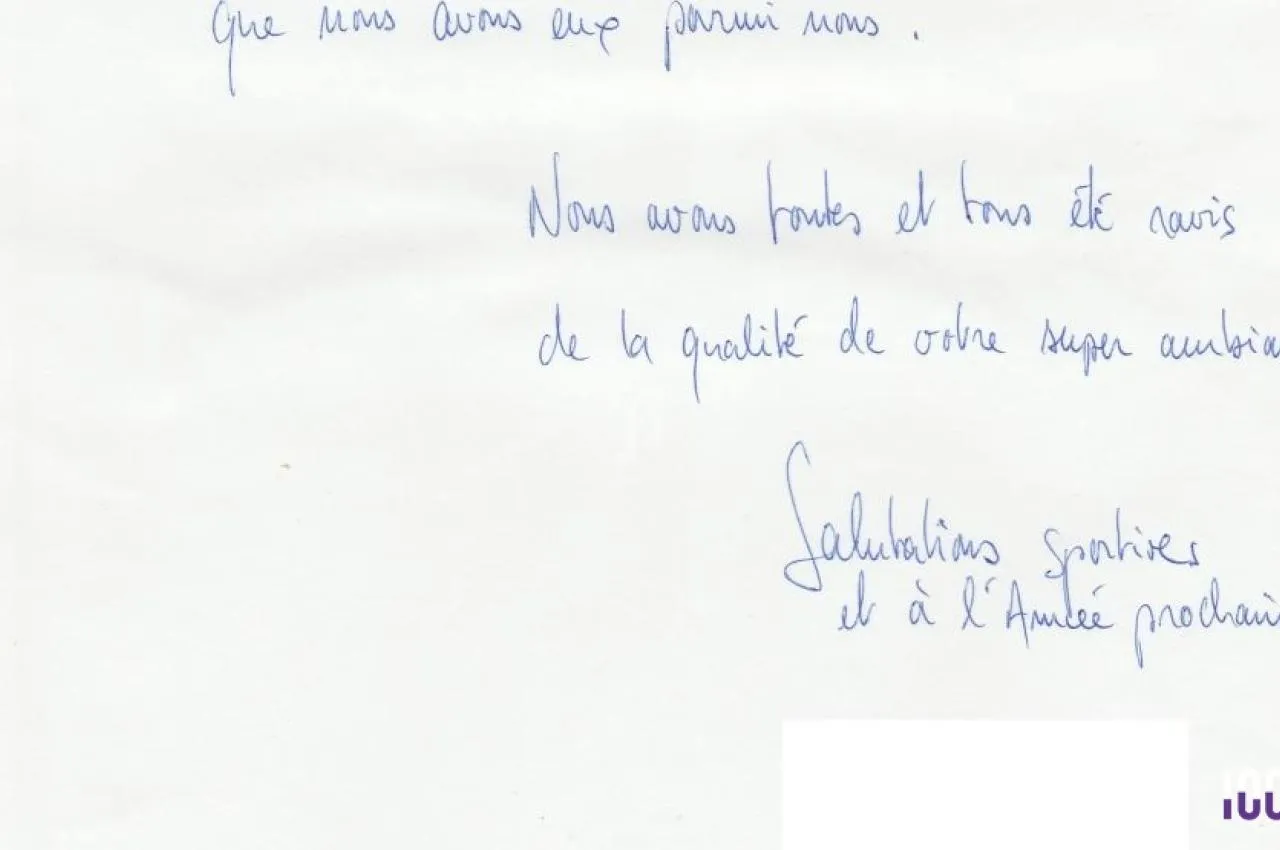 que nous avons eux parmi nous .
Nous avons toutes et tous été ravis
de la qualité de votre super ambian
Salutations sportives
et à l'Année prochain